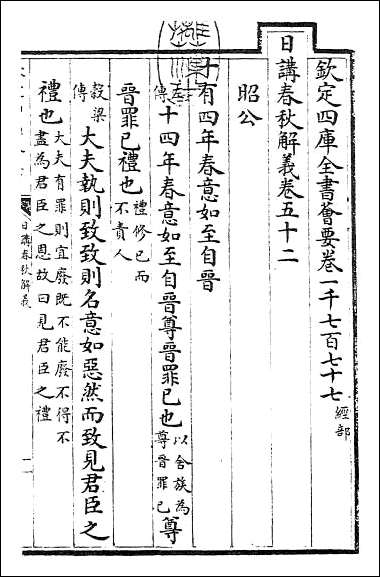 欽定四庫全書薈要卷一千七百七十七 經部
日講春秋解義卷五十二
昭公
十有四年春意如至自晉
傳 十四年春意如至自晉尊晉罪已也 以舍族為尊晉罪已 尊
晉罪已禮也 禮修已而不責人
穀梁傳 大夫執則致致則名意如惡然而致見君臣之
禮也 大夫有罪則宜廢既不能廢不得不盡為君臣之恩故曰見君臣之禮
日講春秋解義
一